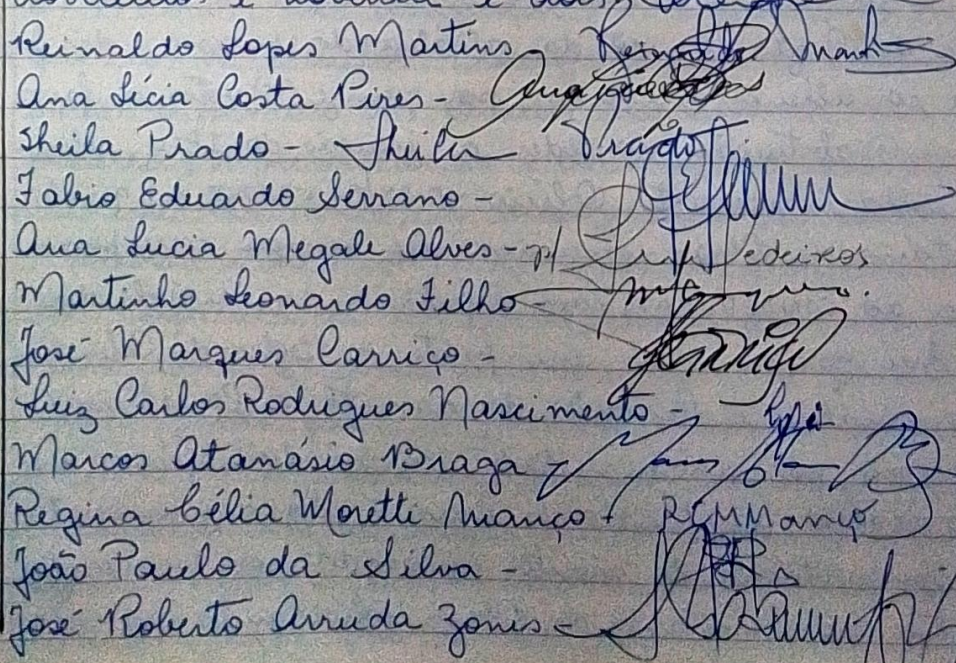 Reinaldo Lopes Martins
Ana Lícia Costa Pires -
Sheila Prado - Sheila Prado
Fabio Eduardo Serrano -
Ana Lucia Megale Alves - p/ Medeiros
Martinho Leonardo Filho -
José Marques Carriço - Carriço
Luiz Carlos Rodrigues Nascimento -
Marcos Atanásio Braga -
Regina Célia Moretti Manço - RCMManço
João Paulo da Silva -
José Roberto Arruda Zonis -